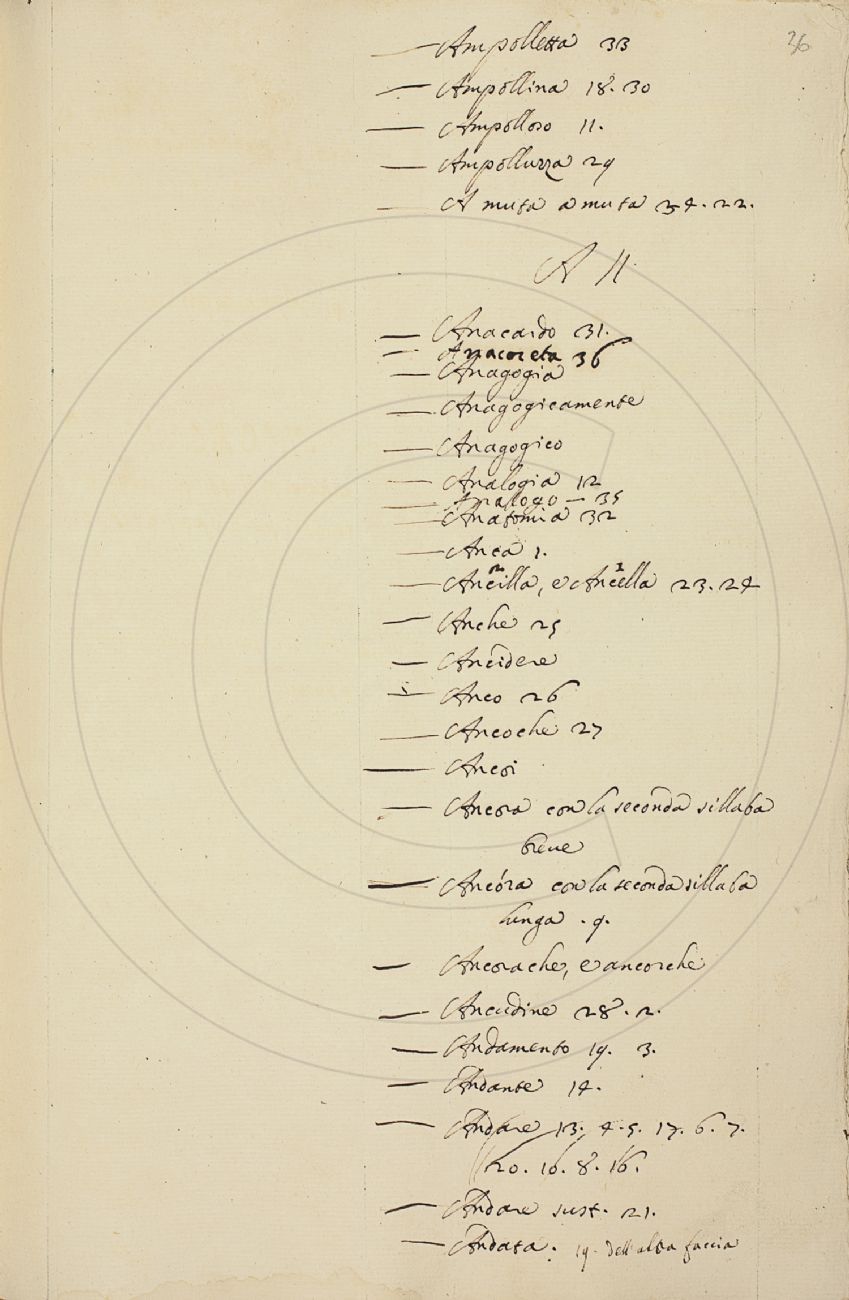 36
— Ampolletta 33
— Ampollina 18. 30
— Ampolloso 11.
— Ampolluzza 29
— A muta a muta 34. 22.
A N
— Anacardo 31.
— Anacoreta 36
— Anagogia
— Anagogicamente
— Anagogico
— Analogia 12
— Analogo — 35
— Anatomia 32
— Anca 1.
— Ancilla, e Ancella 23. 24
— Anche 25
— Ancidere
— Anco 26
— Ancoche 27
— Ancoi
— Ancora con la seconda sillaba
breue
— Ancóra con la seconda sillaba
lunga . 9.
— Ancorache, e ancorche
— Ancudine 28. 2.
— Andamento 19. 3.
— Andante 14.
— Andare 13. 4. 5. 17. 6. 7.
20. 16. 8. 16.
— Andare sust. 21.
— Andata. 19. dell'altra faccia